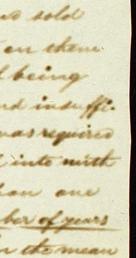 sold
on them
being
nd insuffi-
was required
into with
han one
ber of years
in the mean